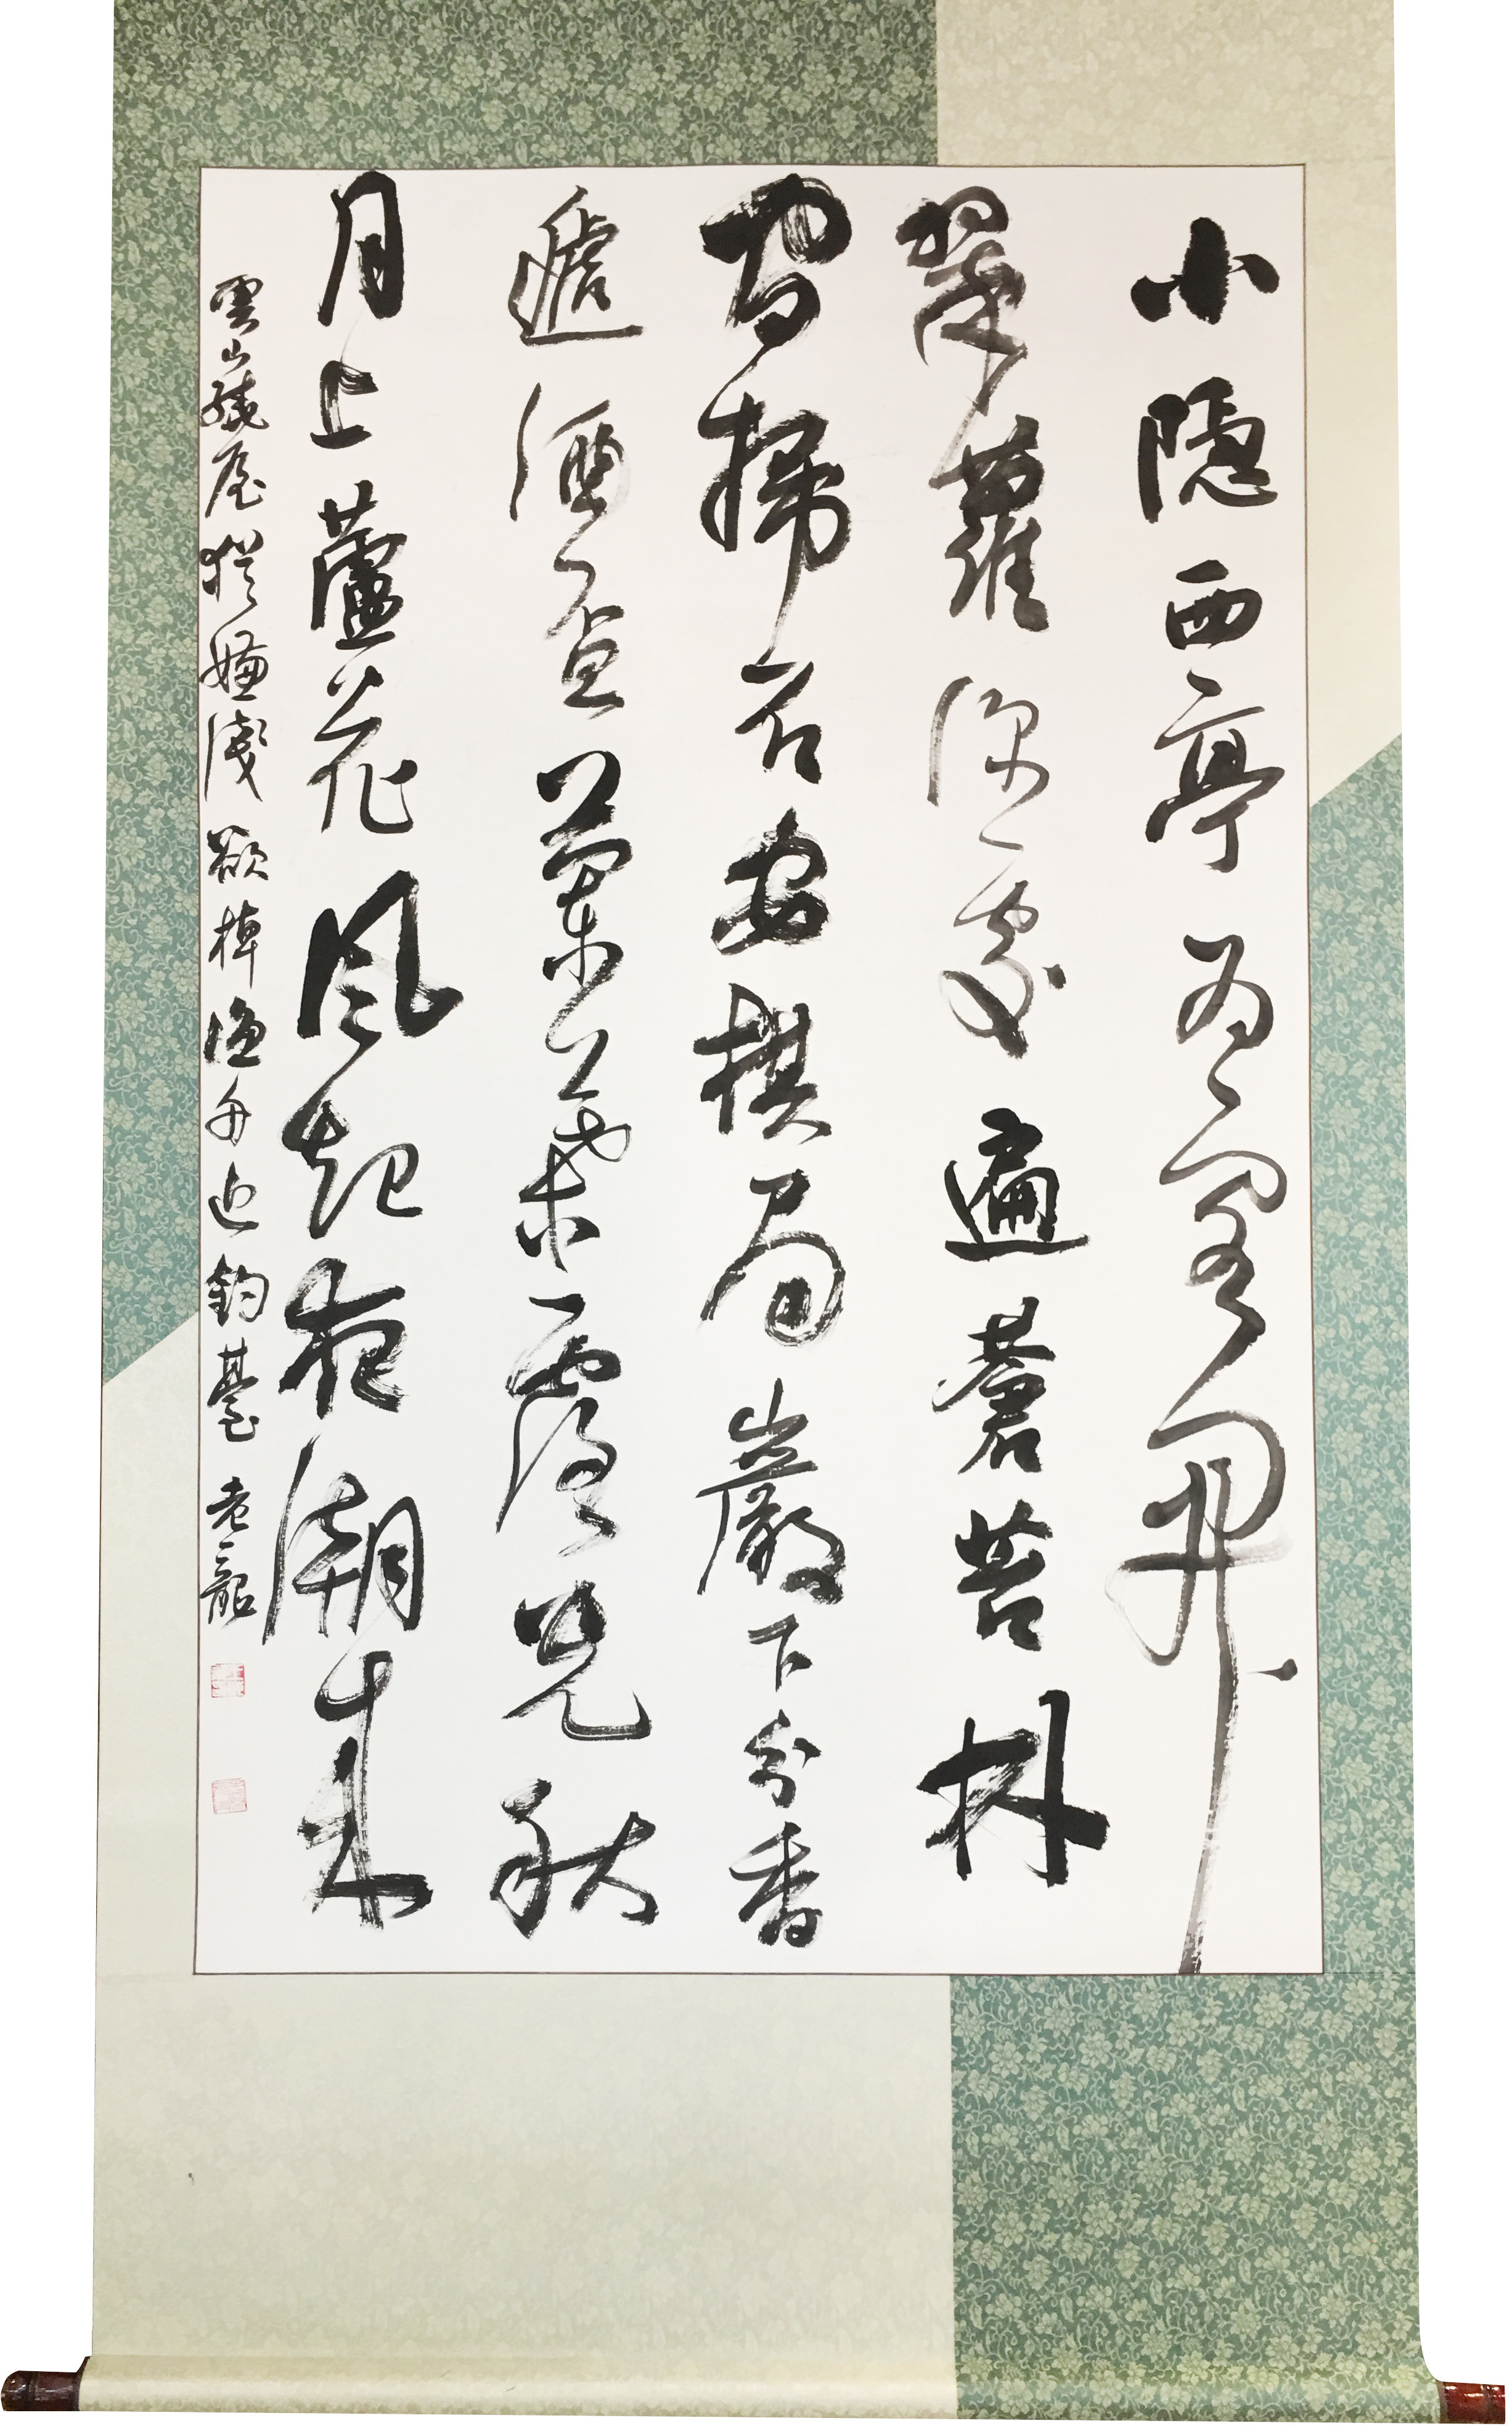 小隱西亭為客開
翠蘿深處遍蒼苔林
間掃石安棋局巖下分香
遞酒盃蘭葉露光秋
月上蘆花風起夜潮來
雲山繞屋猶嫌淺欲棹漁舟近釣臺 老